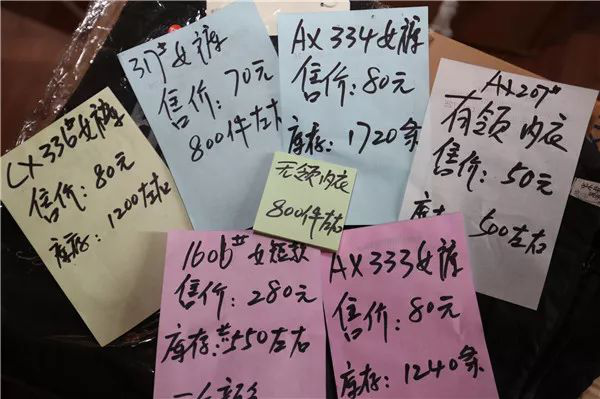 317#女裤
售价:70元
800件左右
AX 334女裤
售价:80元
库存:1720条
AX207#
有领内衣
售价:50元
500左右
CX 336#女裤
售价:80元
库存:1200左右
无领内衣
800件左右
1606#女短款
售价:280元
库存:共550左右
AX333女裤
售价:80元
库存:1240条